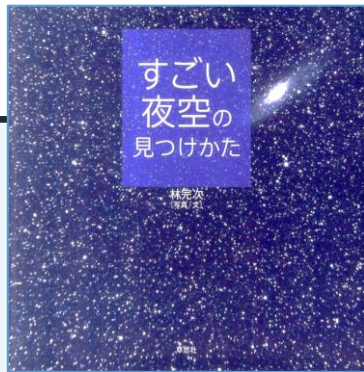 すごい
夜空の
見つけかた
林完次
[写真/文]
草思社